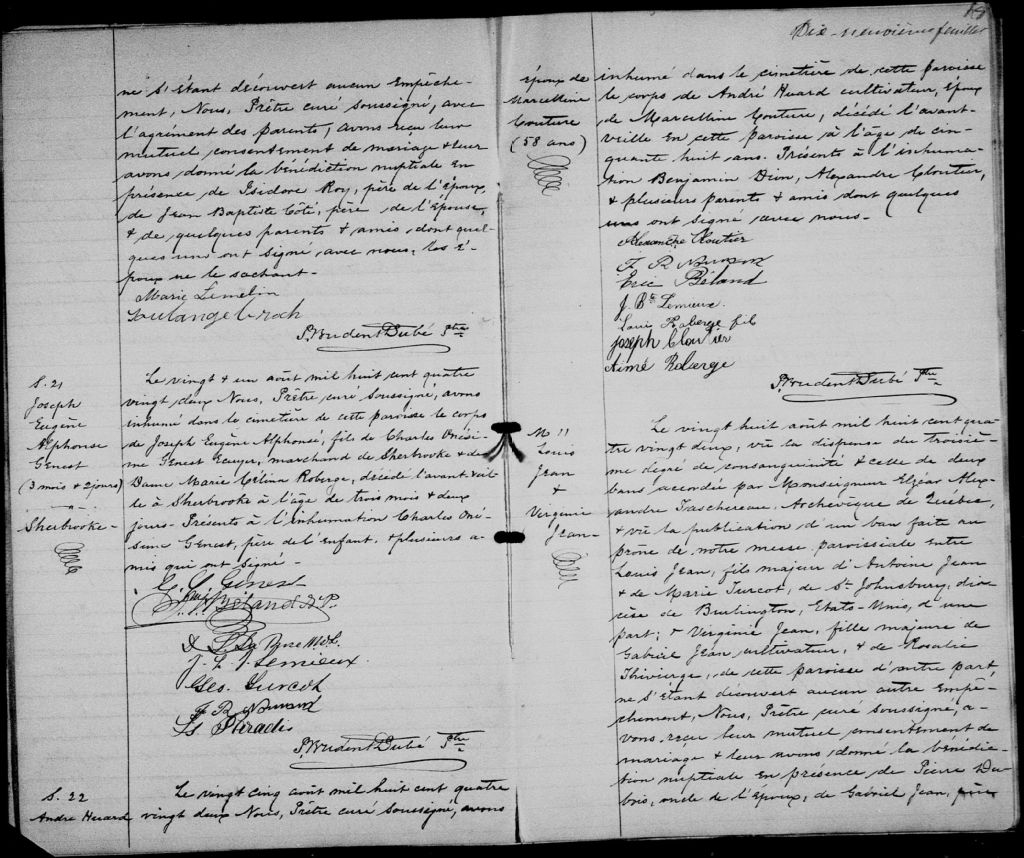 ne s'étant découvert aucun empêche-
ment, Nous, Prêtre curé soussigné, avec
l'agrément des parents, avons reçu leur
mutuel consentement de mariage & leur
avons donné la bénédiction nuptiale en
présence de Isidore Roy, père de l'époux,
de Jean Baptiste Côté, père de l'épouse,
& de quelques parents & amis dont quel-
ques uns ont signé avec nous, les é-
poux ne le sachant.
Marie Lemelin
P. Prudent Dubé Ptre
S. 21
Joseph
Eugène
Alphonse
Genest
(3 mois & 2 jours)
Sherbrooke -
Le vingt & un août mil huit cent quatre
vingt deux Nous, Prêtre curé soussigné, avons
inhumé dans le cimetière de cette paroisse le corps
de Joseph Eugène Alphonse, fils de Charles Onési-
me Genest Ecuyer, marchand de Sherbrooke & de
Dame Marie Célina Roberge, décédé l'avant-veille
à Sherbrooke à l'âge de trois mois & deux
jours. Présents à l'inhumation Charles Oné-
sime Genest, père de l'enfant, & plusieurs a-
mis qui ont signé -
Genest
Béland N.P.
Lemieux
Geo. Turcot
Paradis
P. Prudent Dubé Ptre
S. 22
André Huard
Le vingt cinq août mil huit cent quatre
vingt deux Nous, Prêtre curé soussigné, avons
19
Dix-neuvième feuillet
époux de
Marcelline
Couture
(58 ans)
inhumé dans le cimetière de cette paroisse
le corps de André Huard cultivateur, époux
de Marcelline Couture, décédé l'avant-
veille en cette paroisse à l'âge de cin-
quante huit ans. Présents à l'inhuma-
tion Benjamin Dion, Alexandre Cloutier,
& plusieurs parents & amis dont quelques
uns ont signé avec nous.
Alexandre Cloutier
Eric Béland
J. Bte Lemieux.
Louis Roberge fils
Joseph Cloutier
Aimé Roberge
P. Prudent Dubé Ptre
M 11
Louis
Jean
&
Virginie
Jean -
Le vingt huit août mil huit cent qua-
tre vingt deux, vû la dispense du troisiè-
me degré de consanguinité & celle de deux
bans accordée par Monseigneur Elzéar Alex-
andre Taschereau, Archevêque de Québec,
& vû la publication d'un ban faite au
prône de notre messe paroissiale entre
Louis Jean, fils majeur d'Antoine Jean
& de Marie Turcot, de St Johnsbury, dio-
cèse de Burlington, Etats-Unis, d'une
part; & Virginie Jean, fille majeure de
Gabriel Jean cultivateur, & de Rosalie
Thivierge, de cette paroisse d'autre part
ne s'étant découvert aucun autre empê-
chement, Nous, Prêtre curé soussigné, a-
vons reçu leur mutuel consentement de
mariage & leur avons donné la bénédic-
tion nuptiale en présence de Pierre Du-
bois, oncle de l'époux, de Gabriel Jean,